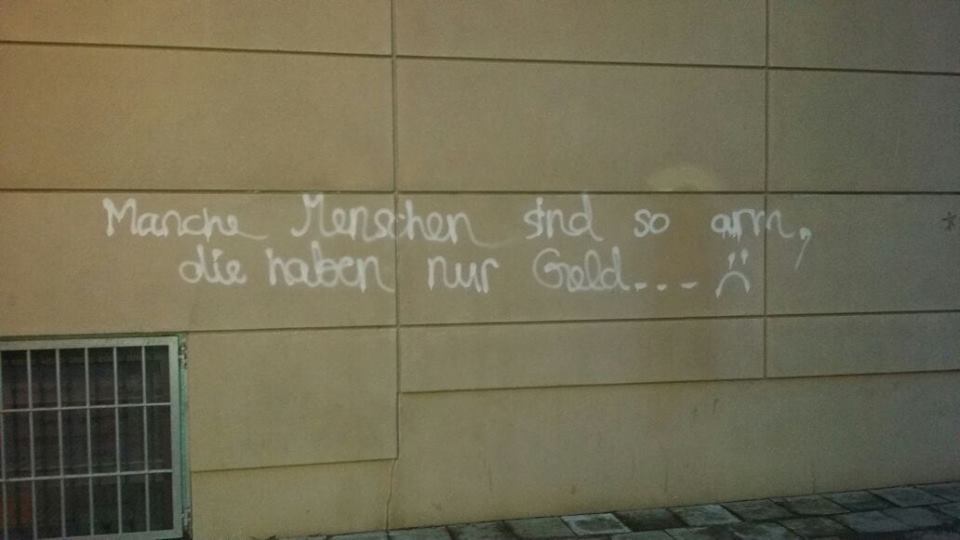 Manche Menschen sind so arm,
die haben nur Geld--- :(